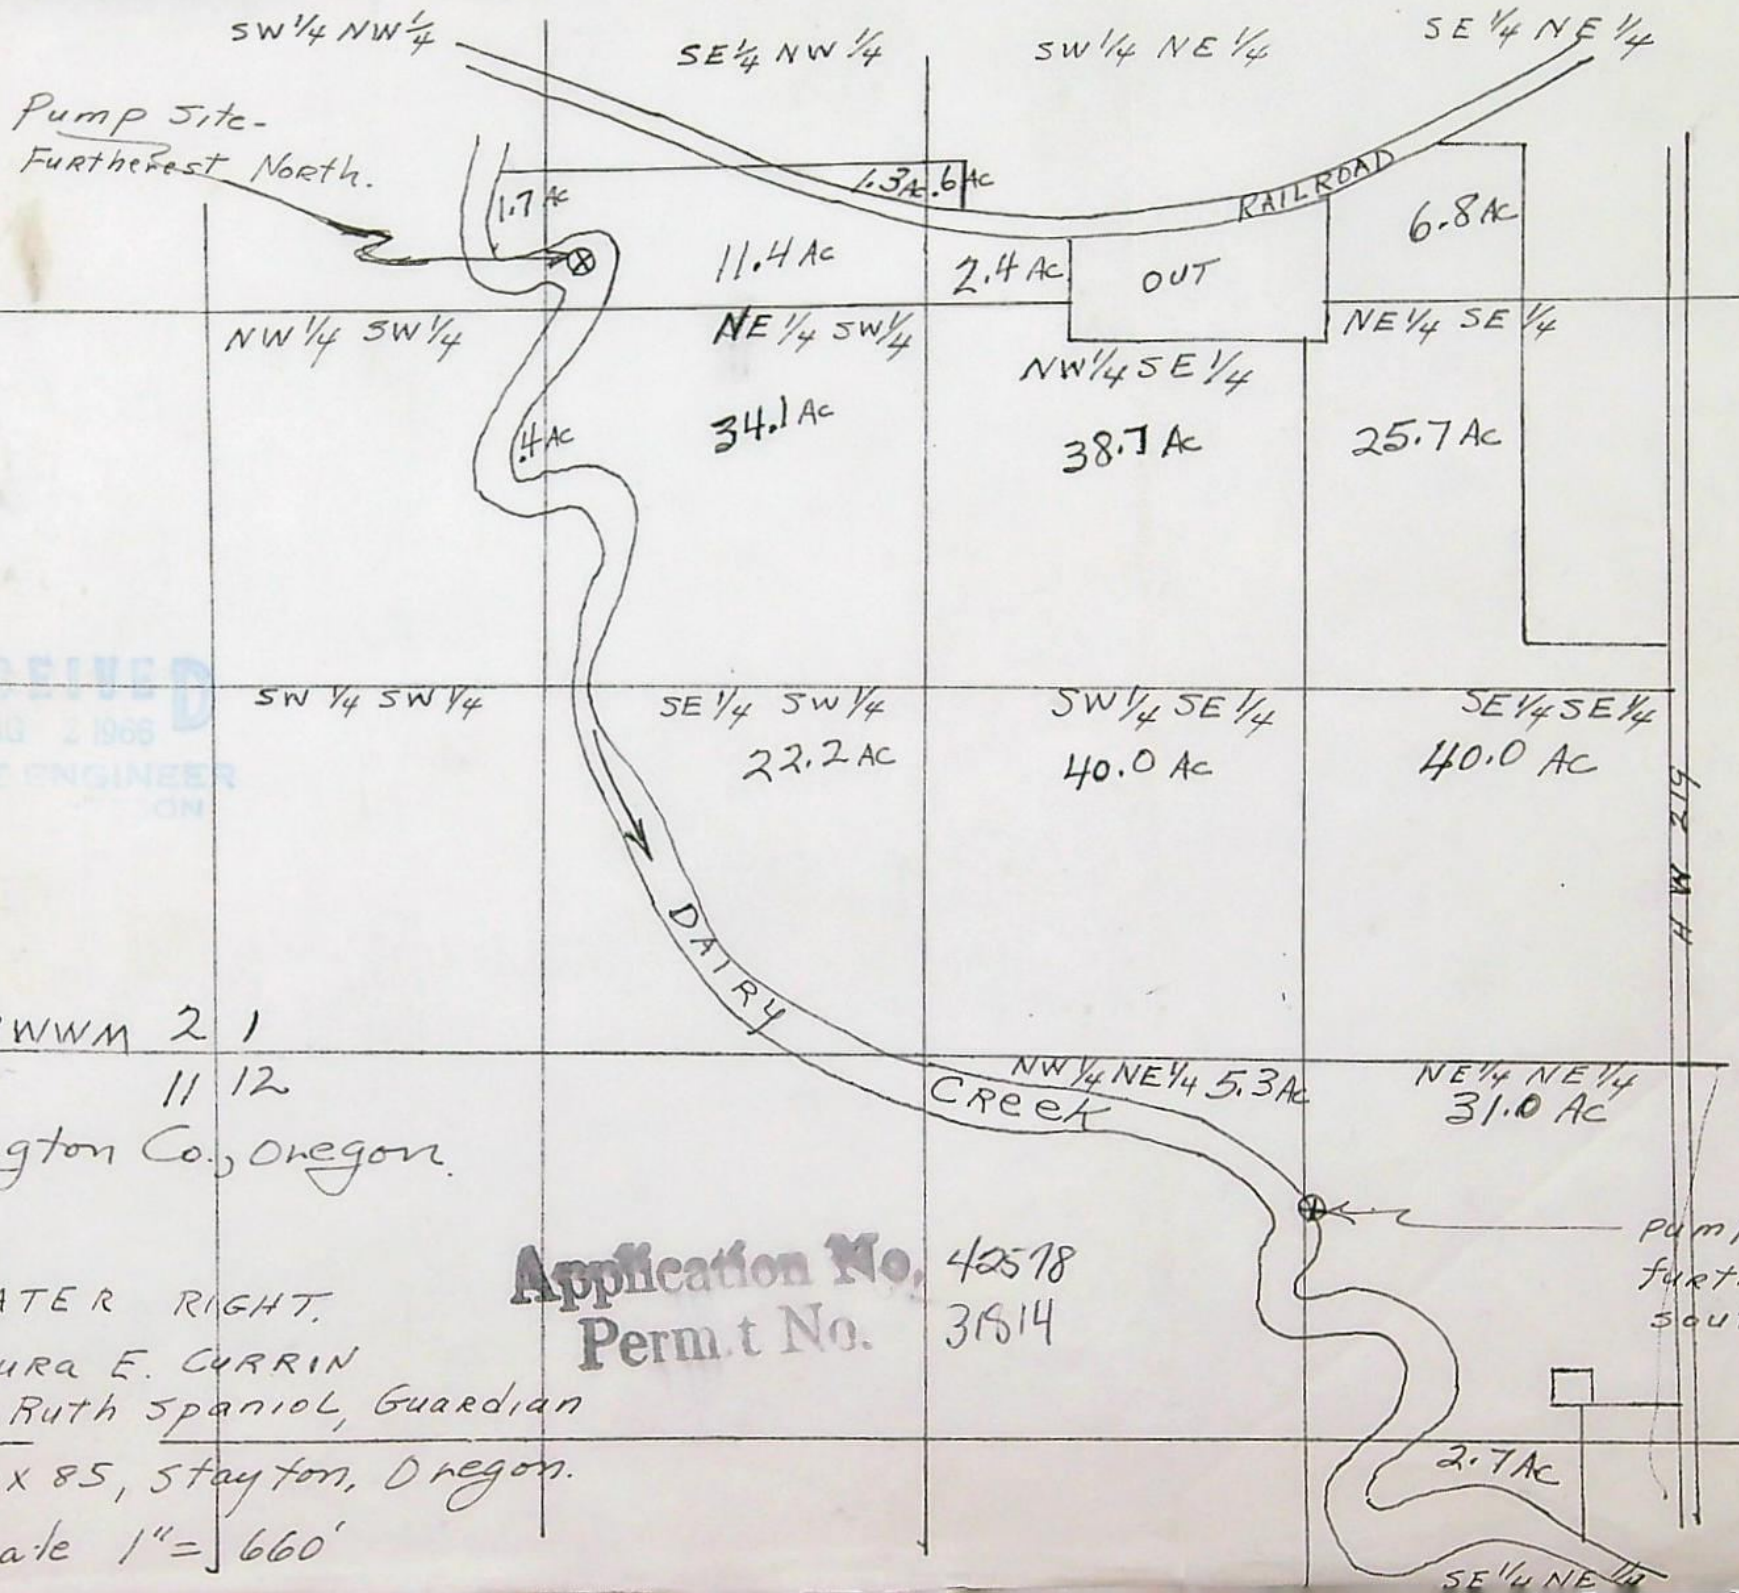 SW 1/4 NW 1/4
SE 1/4 NW 1/4
SW 1/4 NE 1/4
SE 1/4 NE 1/4
Pump Site-
Furtherest North.
1.7 Ac
1.3 Ac
.6 Ac
RAILROAD
6.8 Ac
11.4 Ac
2.4 Ac
OUT
NW 1/4 SW 1/4
NE 1/4 SW 1/4
NW 1/4 SE 1/4
NE 1/4 SE 1/4
.4 Ac
34.1 Ac
38.7 Ac
25.7 Ac
2 1966
ENGINEER
SW 1/4 SW 1/4
SE 1/4 SW 1/4
SW 1/4 SE 1/4
SE 1/4 SE 1/4
22.2 Ac
40.0 Ac
40.0 Ac
HW 219
DAIRY CREEK
WWM 2 1
11 12
NW 1/4 NE 1/4 5.3 Ac
NE 1/4 NE 1/4
31.0 Ac
gton Co., Oregon.
Application No. 42578
Permit No. 31814
pum
furt
sou
ATER RIGHT.
ura E. CURRIN
Ruth Spaniol, Guardian
x 85, Stayton, Oregon.
ale 1" = 660'
2.7 Ac
SE 1/4 NE 1/4